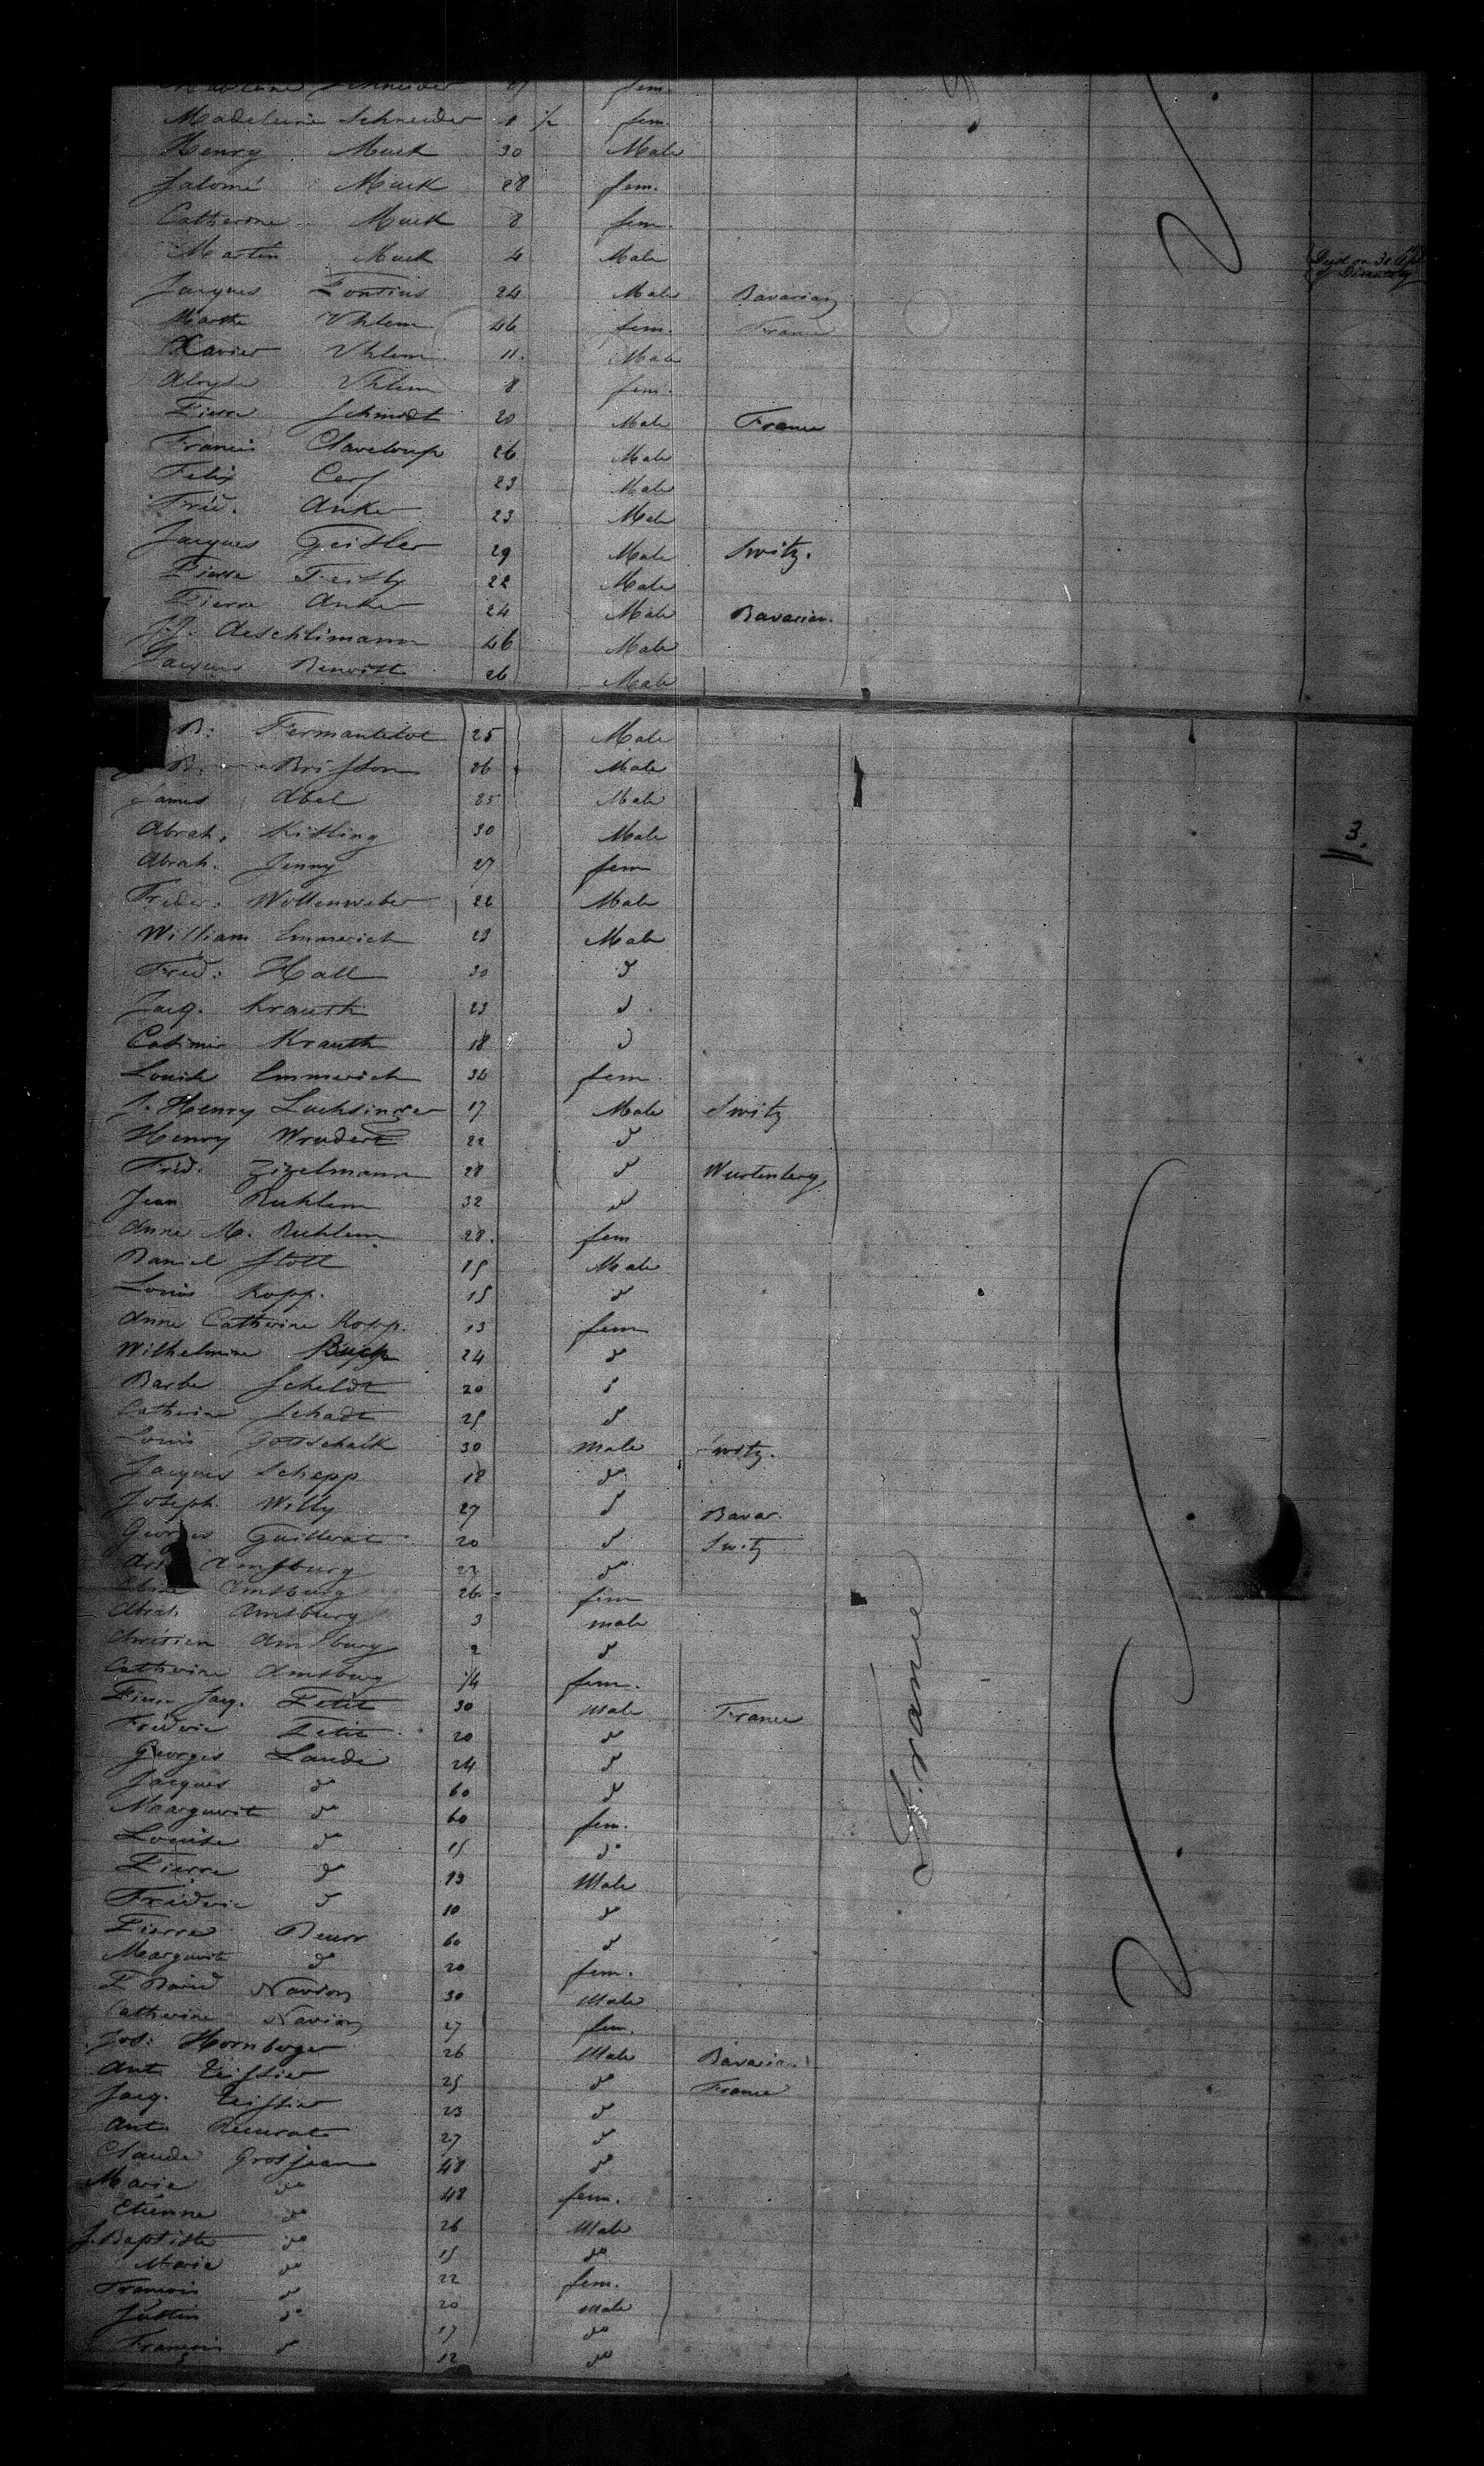 Schneider fem.
Madeleine Schneider 1 1/2 fem.
Henry Muck 30 Male
Salomé Muck 28 fem.
Catherine Muck 8 fem.
Martin Muck 4 Male Died on 30 of
Jacques Pontius 24 Male Bavarian
Marthe Uhlem 46 fem. France
Xavier Uhlem 11. Male
Aloyse Uhlem 8 fem.
Pierre Schmidt 20 Male France
Francis Claveloup 26 Male
Felix Cerf 23 Male
Fréd. Anker 23 Male
Jacques Geisler 29 Male Switz.
Pierre Feisly 22 Male
Pierre Anker 24 Male Bavarian.
J.J. Aeschlimann 46 Male
Jacques Benoitte 26 Male
B. 25 Male
B. Brisson 26 Male
James Abel 35 Male
Abrah. Kitling 30 Male 3.
Abrah. Jenny 27 fem
Freder. Wollenweber 22 Male
William Emmerich 23 Male
Fred: Hall 30 d
Jacq. Krauth 23 d
Casimir Krauth 18 d
Louise Emmerich 34 fem
J. Henry Luchsinger 17 Male Switz
Henry 22 d
Fréd. Zizelmann 28 d Wurtenberg
Jean Ruhlem 32 d
Anne M. Ruhlem 28. fem
Daniel Stoll 15 Male
Louis Kopp. 15 d
Anne Catherine Kopp. 13 fem
Wilhelmine Bupp 24 d
Barbe Scheldt 20 d
Catherine Schadt 25 d
Louis Gottschalk 30 male Switz.
Jacques Schepp 18 do
Joseph Willy 27 d Bavar.
Georges Guillerat 20 d Switz
Amsburg 27 do
Amsburg 26 fem
Abrah. Amsburg 3 male
Christian Amsburg 2 d
Catherine Amsburg 1/4 fem.
Pierre Jacq. Petit 30 Male France
Fréderic Petit 20 d
Georges Laude 24 d
Jacques do 60 d
Marguerite do 60 fem.
Louise do 15 do
Pierre do 13 Male
Fréderic d 10 d
Pierre Beurr 60 d
Marguerite do 20 fem.
P David Navion 30 Male
Catherine Navion 27 fem.
Jos: Hornberger 26 Male Bavaria.
Ant. Teissier 25 do France
Jacq. Teissier 23 d
Ant. 27 d
Claude Grosjean 48 d
Marie do 48 fem.
Etienne do 26 Male
J. Baptiste do 15 do
Marie do 22 fem.
Francois do 20 Male
Justin do 17 do
François d 12 do
France